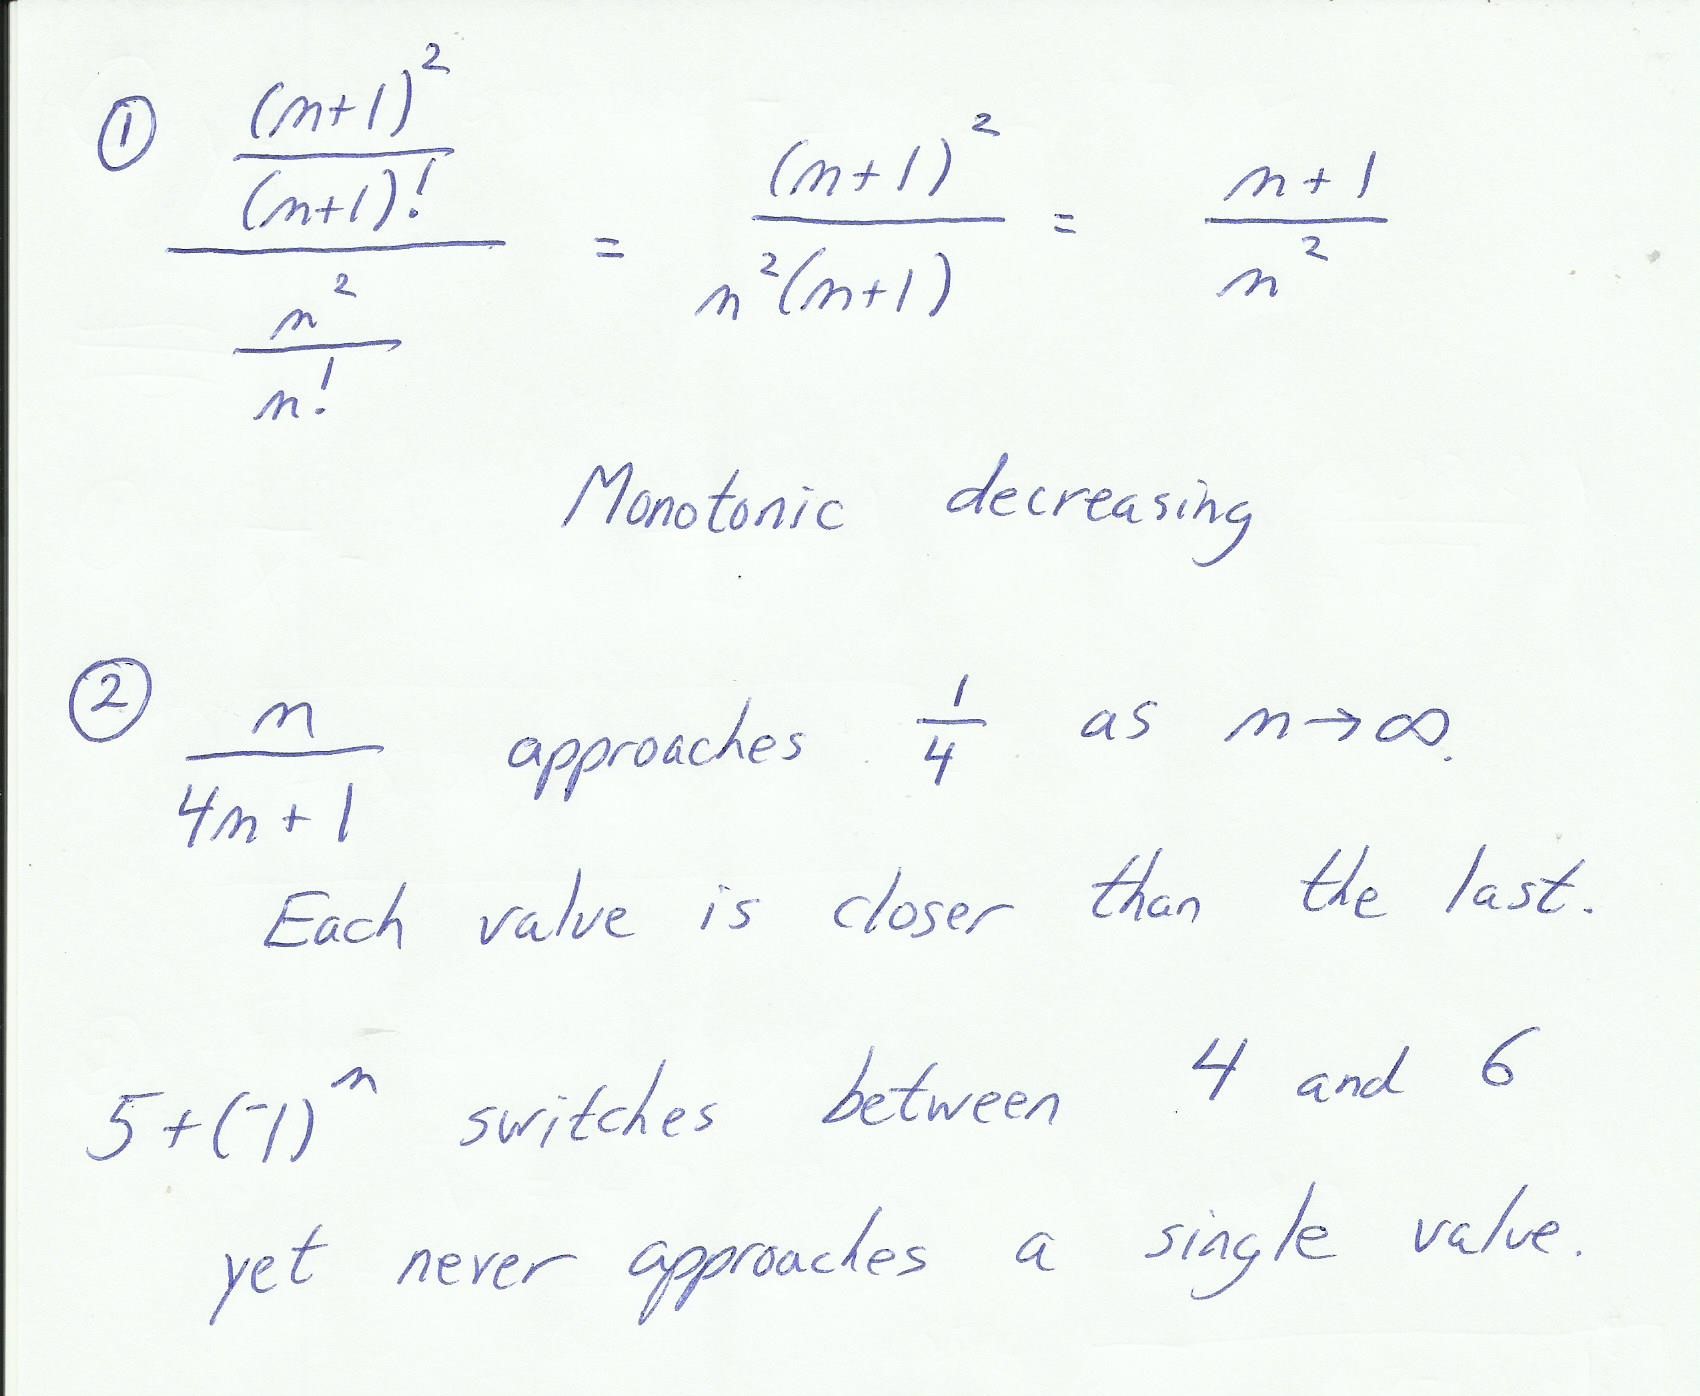 ① ((n+1)²/(n+1)!)/(n²/n!) = (n+1)²/(n²(n+1)) = (n+1)/n²
Monotonic decreasing
② n/(4n+1) approaches 1/4 as n→∞.
Each value is closer than the last.
5+(-1)ⁿ switches between 4 and 6
yet never approaches a single value.